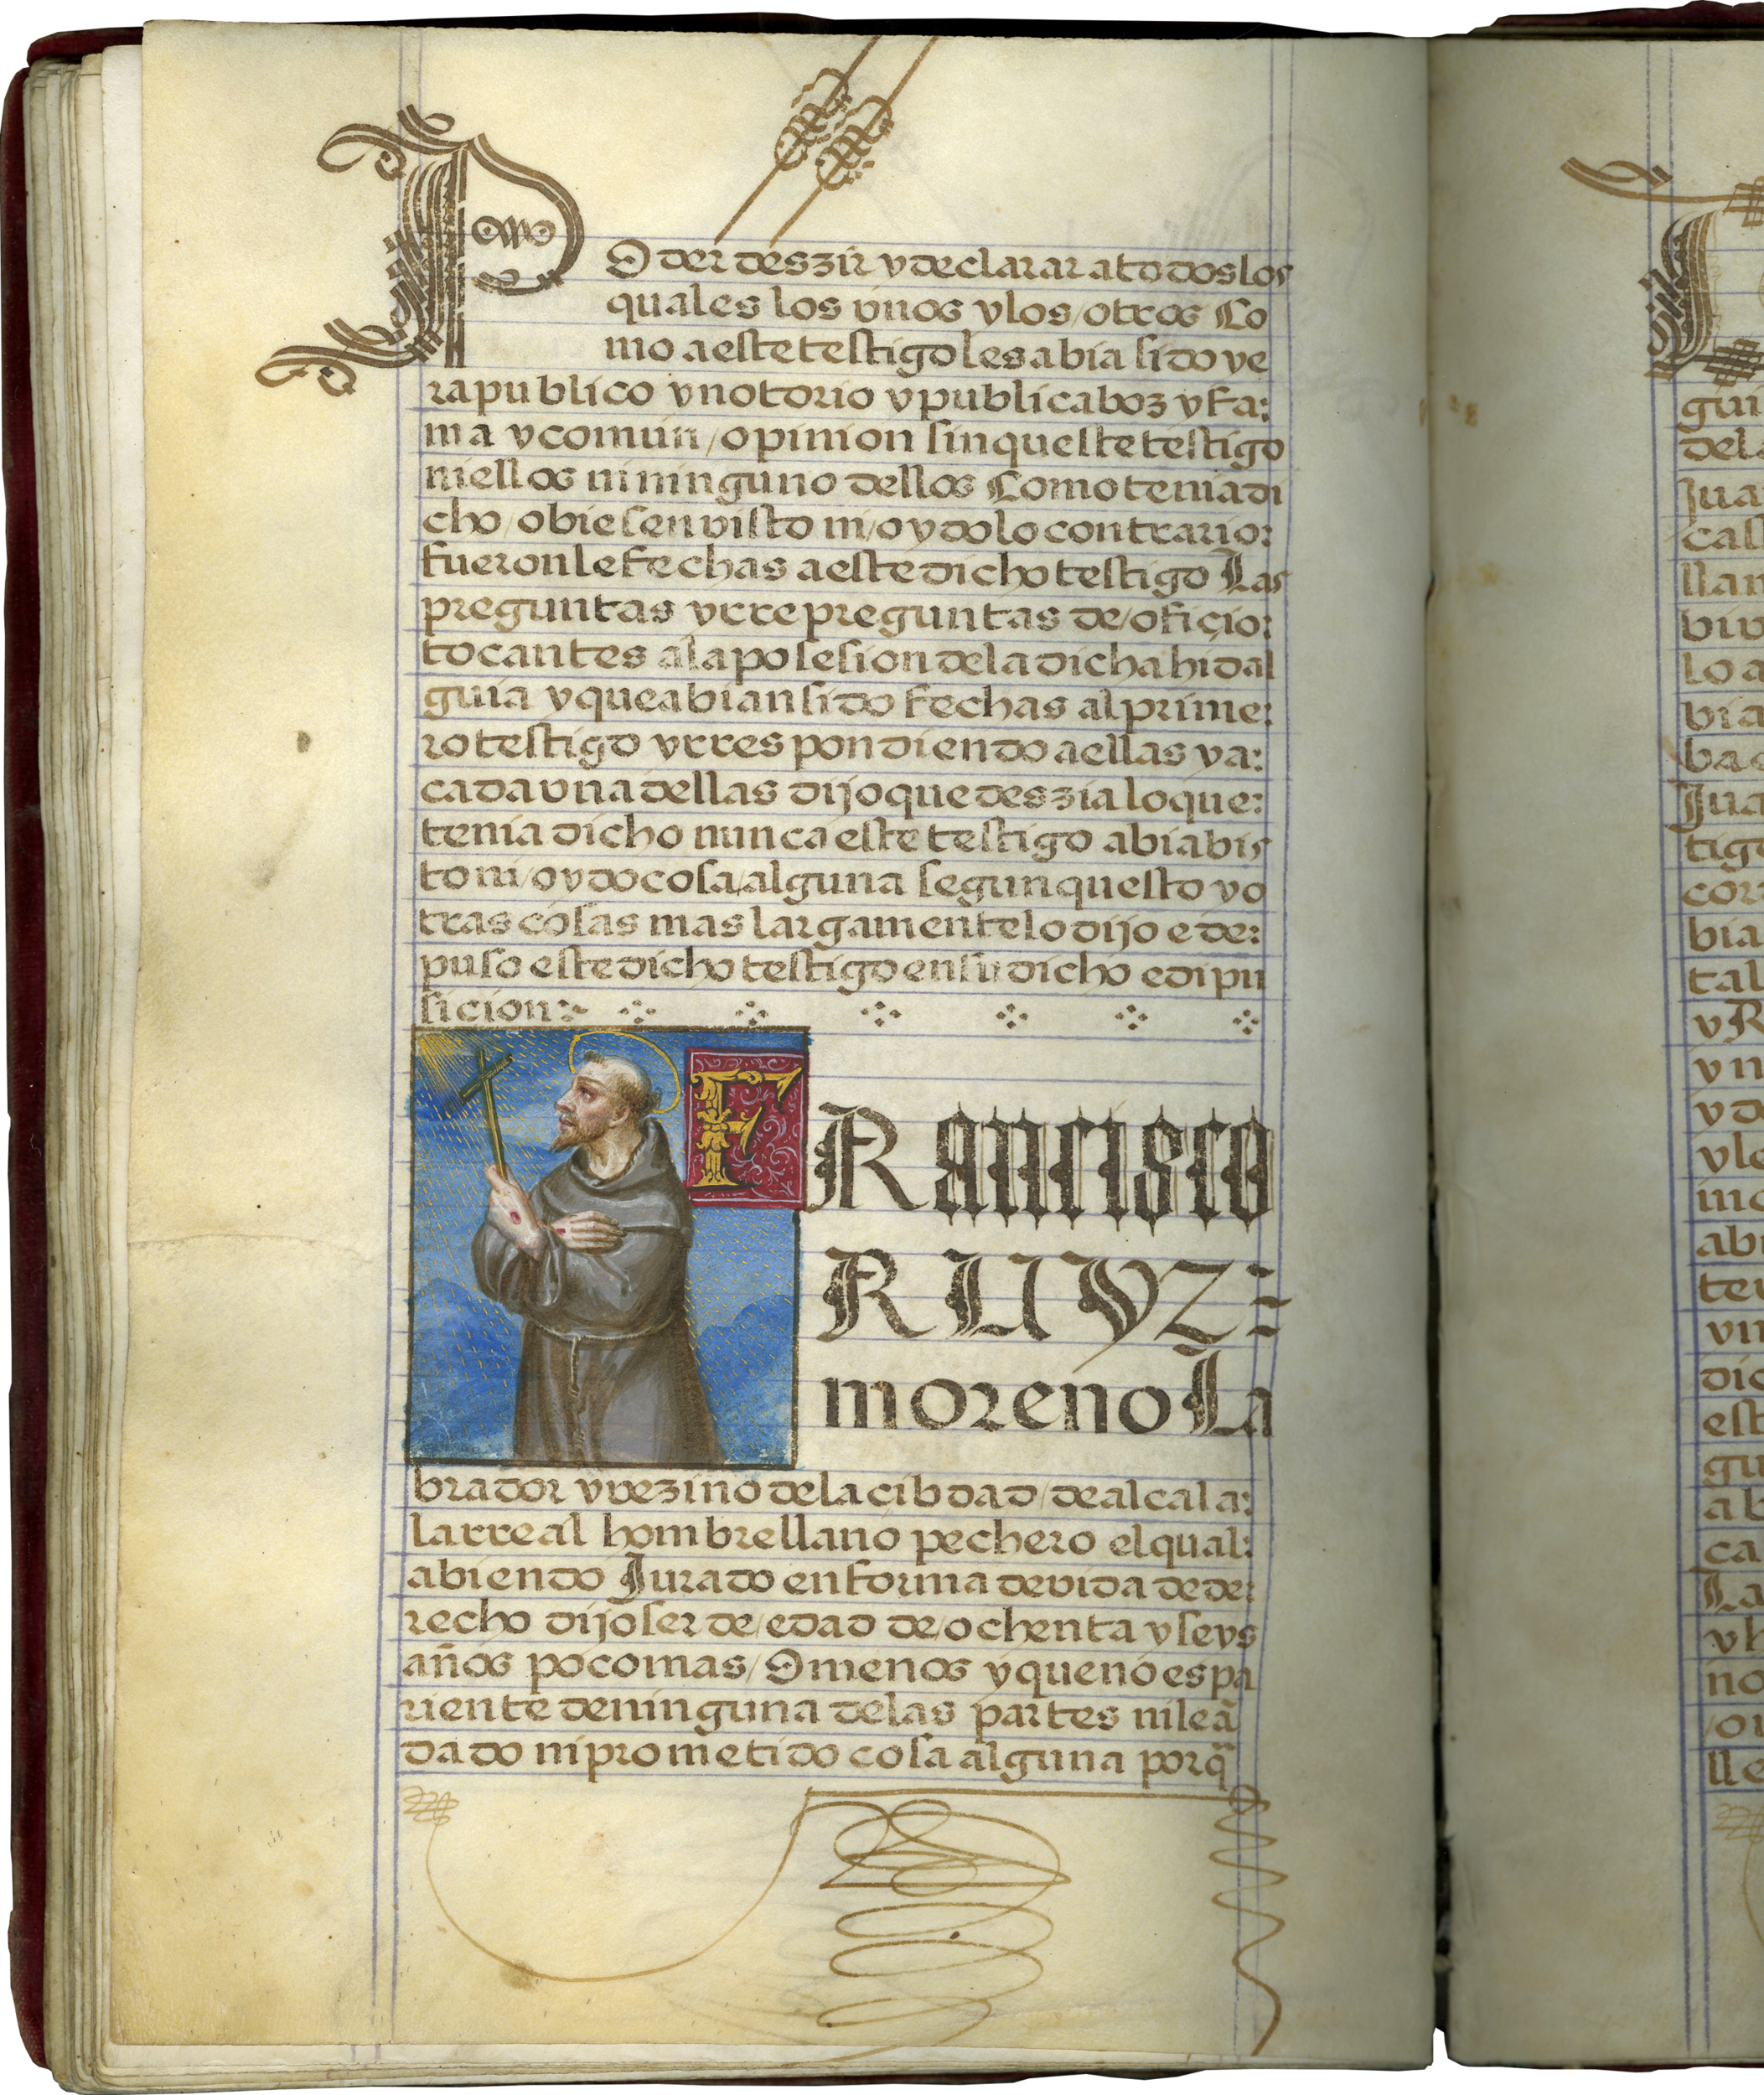 Poder deszir y declarar a todos los
quales los vnos y los / otros Co
mo a este testigo les abia sido ye
ra publico y notorio y publica boz y fa:
ma y comun / opinion sin queste testigo
ni ellos ni ninguno dellos Como tenia di
cho / obiesen visto ni / oydo lo contrario:
fueronle fechas a este dicho testigo Las
preguntas y rrepreguntas de / ofiçio:
tocantes a la posesion de la dicha hidal
guia y que abian sido fechas al prime:
ro testigo y rrespondiendo a ellas y a:
cada vna dellas dijo que deszia lo que:
tenia dicho nunca este testigo abia bis
to ni / oydo cosa / alguna segun questo y o
tras cosas mas largamente lo dijo e de:
puso este dicho testigo en su dicho e dipu
sicion:
FRancisco
RUYZ=
moreno La
brador y vezino de la cibdad / de alcala:
la rreal hombre llano pechero el qual:
abiendo Jurado en forma devida de de:
recho dijo ser de / edad de / ochenta y seys
años poco mas / O menos y que no es pa
riente de ninguna de las partes ni le ã
dado ni prometido cosa alguna porq̃
gui
dela
Jua
cast
llan
biv
lo a
bia
ba
Jua
tigo
cor
bia
tal
y R
y n
y d
y le
mo
abi
ten
vn
dic
est
gu
ab
ca
La
y h
no
/ o
lle